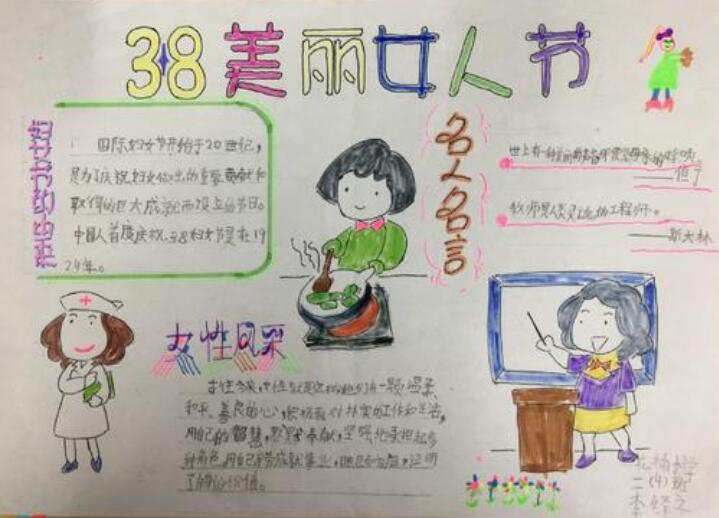 38美丽女人节
妇女节的由来
国际妇女节开始于20世纪,
是为了庆祝妇女做出的重要贡献和
取得的巨大成就而设立的节日。
中国人首度庆祝38妇女节是在19
24年。
名人名言
世上有一种美丽的声音那就是母亲的呼唤
——但丁
教师是人类灵魂的工程师。
——斯大林
女性风采
古往今来,女性就是这样她们有一颗温柔
和平、善良的心,积极
的工作和生活,
用自己的智慧,默默奉献,坚强地承担起多
种角色,用自己
成就事业,
证明
了
的价值。
小学
二(4)班
李绎之